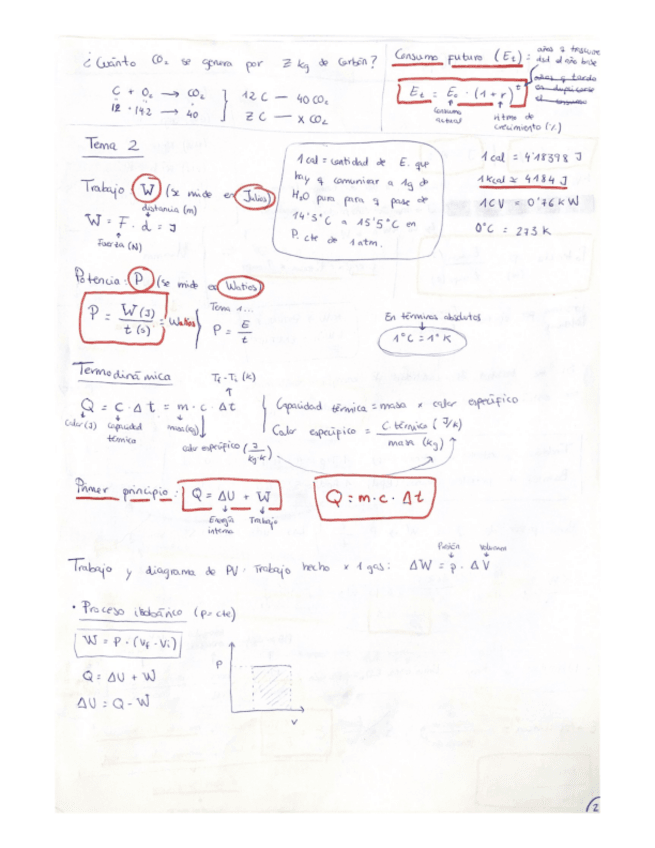 ¿Cuánto CO₂ se genera por Z kg de Carbón?
C + O₂ → CO₂
12 + 14·2 → 40
12 C — 40 CO₂
Z C — x CO₂
Consumo futuro (Et): años q transcurre
dsd el año base
Et = E₀ · (1 + r)^t
Consumo actual
ritmo de crecimiento (%)
años q tarda
en duplicarse
el consumo
Tema 2
Trabajo W (se mide en Julios)
distancia (m)
W = F · d = J
Fuerza (N)
1 cal = cantidad de E. que
hay q comunicar a 1g de
H₂O pura para q pase de
14'5°C a 15'5°C en
P. cte de 1 atm.
1 cal = 4'18398 J
1 kcal ≈ 4184 J
1 CV = 0'76 kW
0°C = 273 K
Potencia: P (se mide en Watios)
P = W (J) / t (s) = Watios
Tema 1...
P = E / t
En términos absolutos
1°C = 1°K
Termodinámica
Tf - Ti (K)
Q = C · Δt = m · c · Δt
Calor (J)
capacidad térmica
masa (kg)
calor específico (J / kg·K)
Capacidad térmica = masa × calor específico
Calor específico = C térmica (J/K) / masa (kg)
Primer principio: Q = ΔU + W
Energía interna
Trabajo
Q = m · c · Δt
Presión
Volumen
Trabajo y diagrama de PV · Trabajo hecho × 1 gas: ΔW = p · ΔV
· Proceso isobárico (p = cte)
W = P · (Vf - Vi)
Q = ΔU + W
ΔU = Q - W
P
V
2